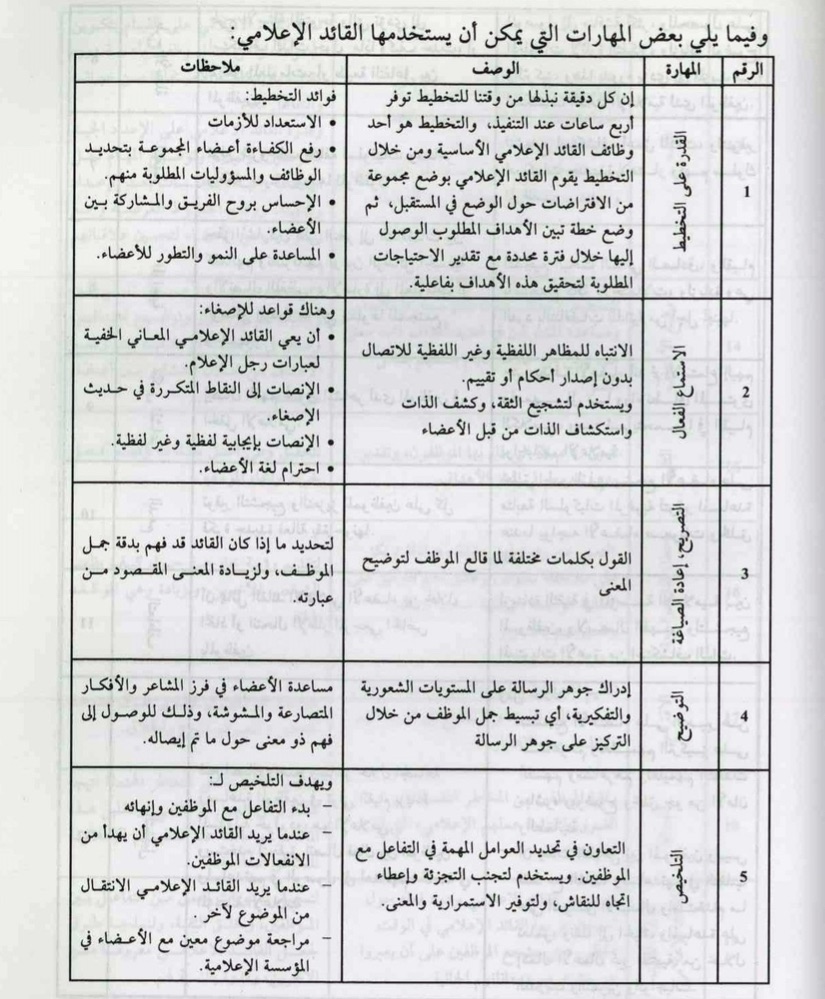 وفيما يلي بعض المهارات التي يمكن أن يستخدمها القائد الإعلامي:
الرقم المهارة الوصف ملاحظات
1
القدرة على التخطيط
إن كل دقيقة نبذلها من وقتنا للتخطيط توفر
أربع ساعات عند التنفيذ، والتخطيط هو أحد
وظائف القائد الإعلامي الأساسية ومن خلال
التخطيط يقوم القائد الإعلامي بوضع مجموعة
من الافتراضات حول الوضع في المستقبل، ثم
وضع خطة تبين الأهداف المطلوب الوصول
إليها خلال فترة محددة مع تقدير الاحتياجات
المطلوبة لتحقيق هذه الأهداف بفاعلية.
فوائد التخطيط:
• الاستعداد للأزمات
• رفع الكفاءة أعضاء المجموعة بتحديد
الوظائف والمسؤوليات المطلوبة منهم.
• الإحساس بروح الفريق والمشاركة بين
الأعضاء.
• المساعدة على النمو والتطور للأعضاء.
2
الاستماع الفعال
الانتباه للمظاهر اللفظية وغير اللفظية للاتصال
بدون إصدار أحكام أو تقييم.
ويستخدم لتشجيع الثقة، وكشف الذات
واستكشاف الذات من قبل الأعضاء
وهناك قواعد للإصغاء:
• أن يعي القائد الإعلامي المعاني الخفية
لعبارات رجل الإعلام.
• الإنصات إلى النقاط المتكررة في حديث
الإصغاء.
• الإنصات بإيجابية لفظية وغير لفظية.
• احترام لغة الأعضاء.
3
التصريح، إعادة الصياغة
القول بكلمات مختلفة لما قالع الموظف لتوضيح
المعنى
لتحديد ما إذا كان القائد قد فهم بدقة جمل
الموظف، ولزيادة المعنى المقصود من
عبارته.
4
التوضيح
إدراك جوهر الرسالة على المستويات الشعورية
والتفكيرية، أي تبسيط جمل الموظف من خلال
التركيز على جوهر الرسالة
مساعدة الأعضاء في فرز المشاعر والأفكار
المتصارعة والمشوشة، وذلك للوصول إلى
فهم ذو معنى حول ما تم إيصاله.
5
التلخيص
التعاون في تحديد العوامل المهمة في التفاعل مع
الموظفين. ويستخدم لتجنب التجزئة وإعطاء
اتجاه للنقاش، ولتوفير الاستمرارية والمعنى.
ويهدف التلخيص لـ:
– بدء التفاعل مع الموظفين وإنهائه
– عندما يريد القائد الإعلامي أن يهدأ من
الانفعالات الموظفين.
– عندما يريد القائد الإعلامي الانتقال
من الموضوع لآخر.
– مراجعة موضوع معين مع الأعضاء في
المؤسسة الإعلامية.